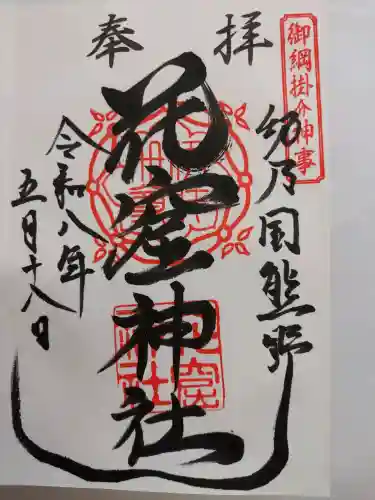 奉拝
御綱掛け神事
紀乃国熊野
花窟神社
令和八年
五月十八日